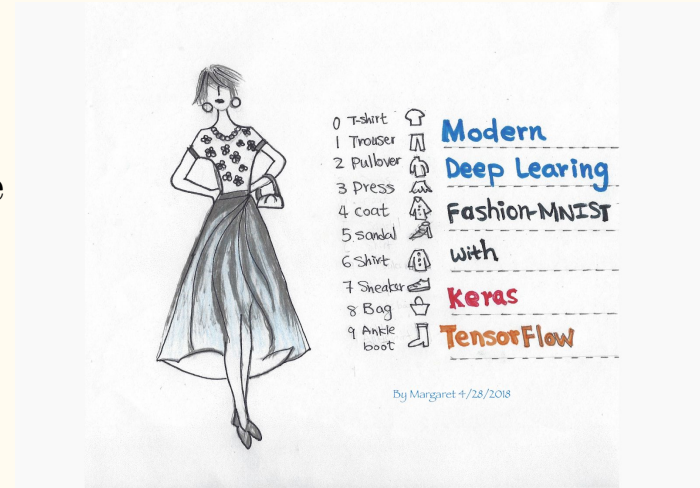 e
0 T-shirt
1 Trouser
2 Pullover
3 Press
4 coat
5 sandal
6 Shirt
7 Sneaker
8 Bag
9 Ankle
boot
Modern
Deep Learing
Fashion-MNIST
with
Keras
TensorFlow
By Margaret 4/28/2018